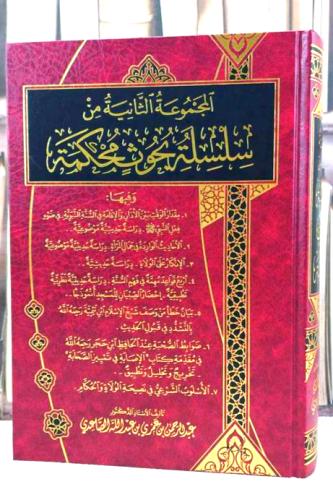 المجموعة الثانية من
سلسلة بحوث محكمة
وفيها:
١. مقدار الوقت بين الأذان والإقامة في السنة النبوية في ضوء
فعل النبي ﷺ. دراسة حديثية موضوعية
٢. الأحاديث الواردة في جمال المرأة. دراسة حديثية موضوعية
٣. الإنكار على الولاة. دراسة حديثية.
٤. أربع قواعد مهمة في فهم السنة. دراسة حديثية نظرية
تطبيقية. إحضار الصبيان للمسجد أنموذجًا.
٥. بيان خطأ من وصف شيخ الإسلام ابن تيمية رحمه الله
بالتشدد في قبول الحديث.
٦. ضوابط الصحبة عند الحافظ ابن حجر رحمه الله
في مقدمة كتاب "الإصابة في تمييز الصحابة"
- تخريج وتحليل وتطبيق -
٧. الأسلوب الشرعي في نصيحة الولاة والحكام.
تأليف الأستاذ الدكتور
عبد الرحمن بن عمري بن عبد الله الصاعدي